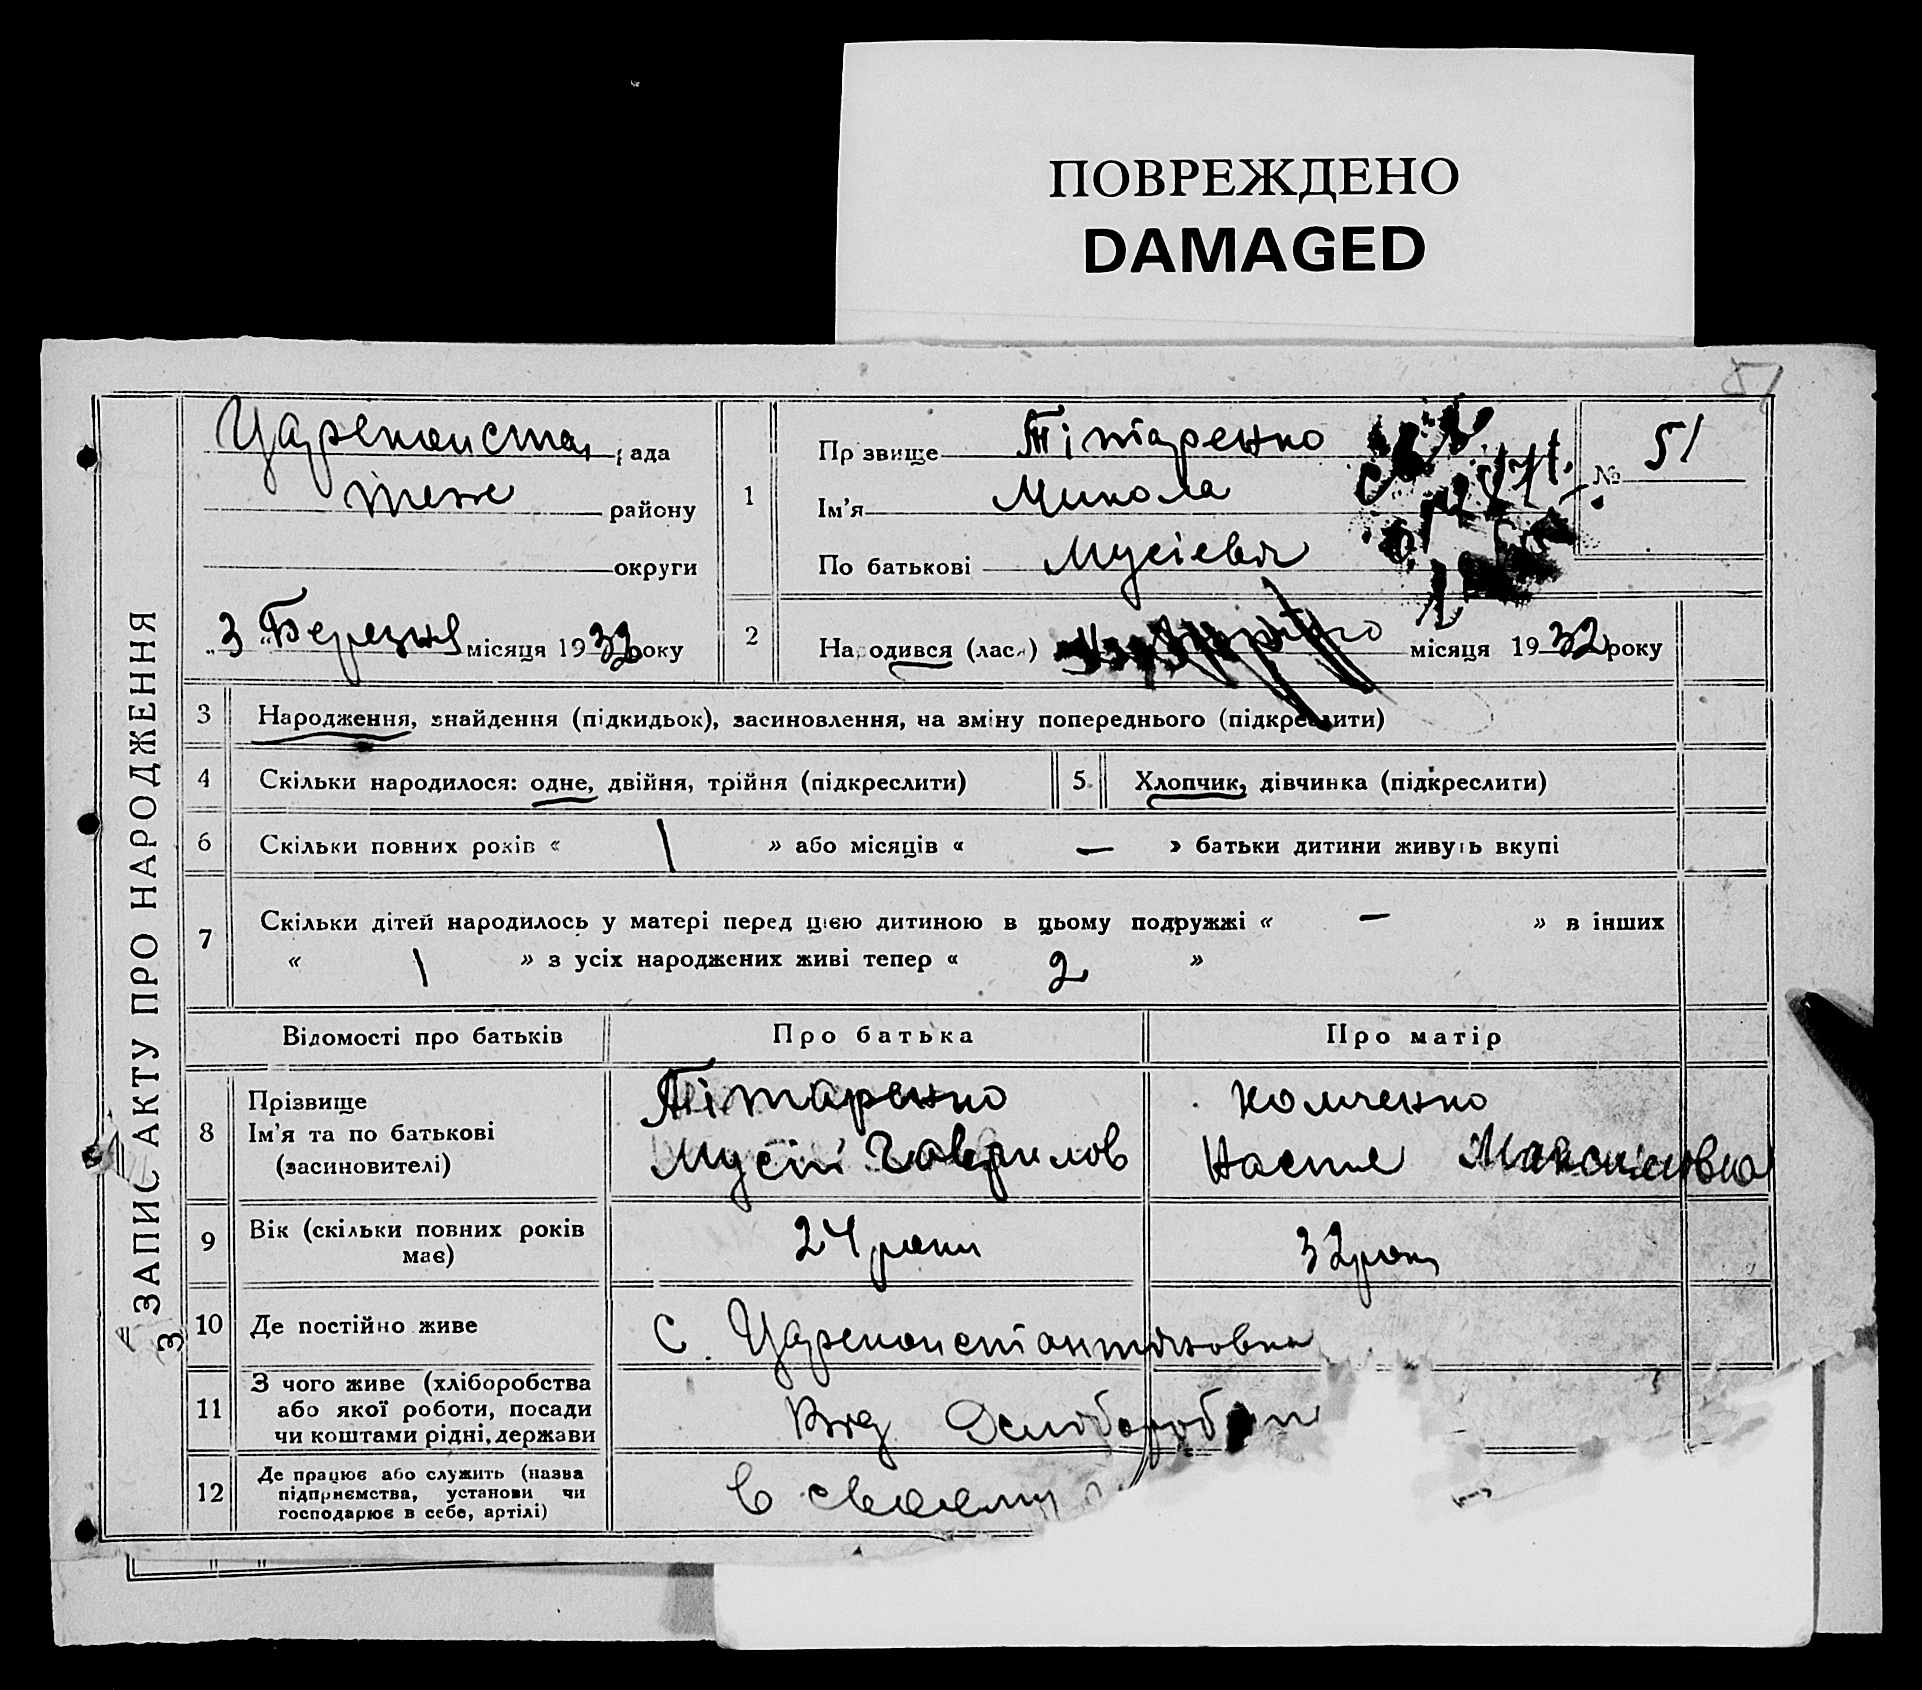 ПОВРЕЖДЕНО
DAMAGED
51
ЗАПИС АКТУ ПРО НАРОДЖЕННЯ
З
Цареконста рада
теж району
округи
„3 „Березня місяця 1932 року
1
Прізвище Тітаренко
Ім'я Микола
По батькові Мусієвич
№ 51
2 Народився (лася) місяця 1932 року
3 Народження, знайдення (підкидьок), засиновлення, на зміну попереднього (підкреслити)
4 Скільки народилося: одне, двійня, трійня (підкреслити)
5 Хлопчик, дівчинка (підкреслити)
6 Скільки повних років « 1 » або місяців « — » батьки дитини живуть вкупі
7 Скільки дітей народилось у матері перед цією дитиною в цьому подружжі « — » в інших
« 1 » з усіх народжених живі тепер « 2 »
Відомості про батьків Про батька Про матір
8 Прізвище
Ім'я та по батькові
(засиновителі)
Тітаренко
Мусій Гаврилов
Комченко
Настя Максимовна
9 Вік (скільки повних років
має)
24 роки
32 роки
10 Де постійно живе
с. Цареконстантиновка
11 З чого живе (хліборобства
або якої роботи, посади
чи коштами рідні, держави
Від
12 Де працює або служить (назва
підприємства, установи чи
господарює в себе, артілі)
В своему